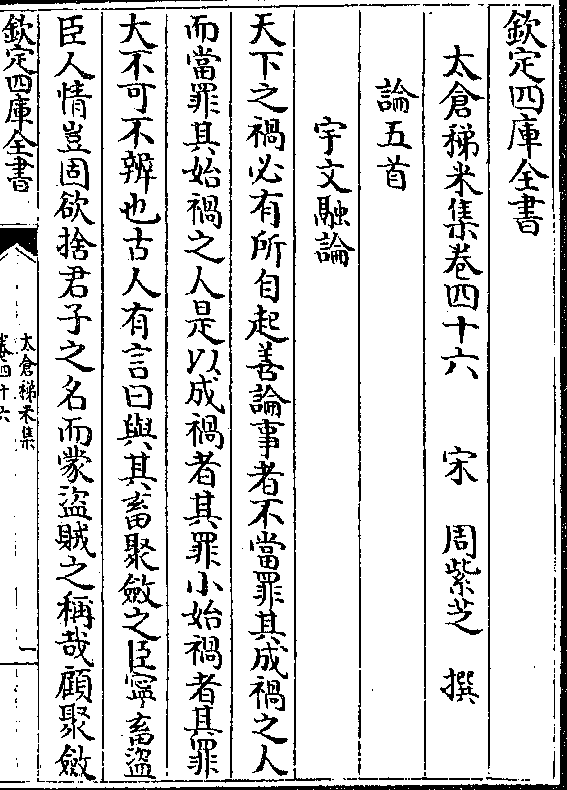 欽定四庫全書
太倉稊米集卷四十六 宋 周紫芝 撰
論五首
宇文融論
天下之禍必有所自起善論事者不當罪其成禍之人
而當罪其始禍之人是以成禍者其罪小始禍者其罪
大不可不辨也古人有言曰與其畜聚斂之臣寧畜盜
臣人情豈固欲捨君子之名而蒙盜賊之稱哉顧聚斂
欽定四庫全書
太倉稊米集
卷四十六
一